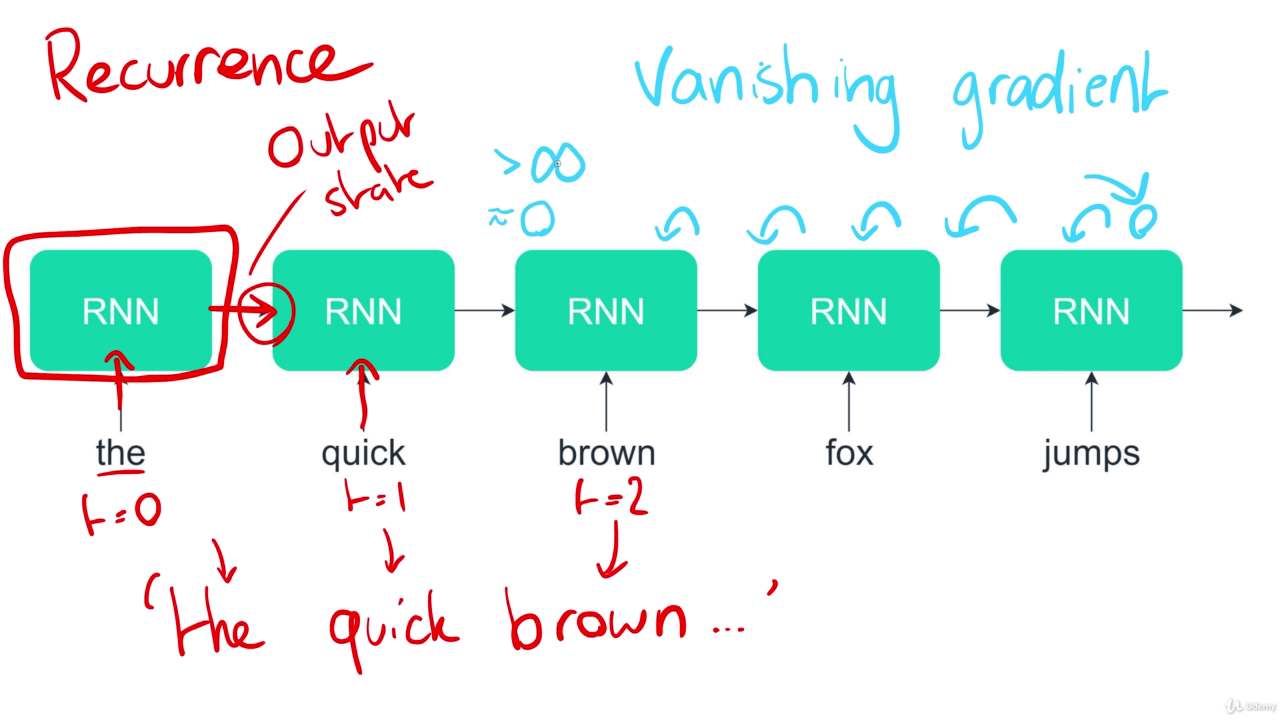 Recurrence
Vanishing gradient
Output
state
> ∞
≈ 0
0
RNN RNN RNN RNN RNN
the quick brown fox jumps
t=0 t=1 t=2
'the quick brown ...'
Udemy